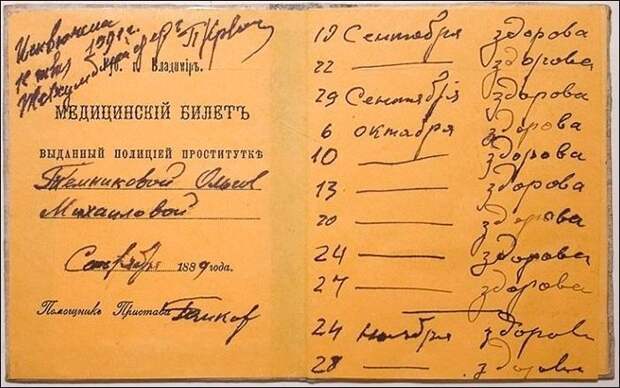 Исключена
1891 г.
Губ. г. Владиміръ.
МЕДИЦИНСКІЙ БИЛЕТЪ
ВЫДАННЫЙ ПОЛИЦІЕЙ ПРОСТИТУТКѢ
Темниковой
Михаиловой
Сентября 1889 года.
Помощникъ Пристава
19 Сентября здорова
22 — здорова
29 Сентября здорова
6 октября здорова
10 — здорова
13 — здорова
20 — здорова
24 — здорова
27 — здорова
24 ноября здорова
28 — здорова